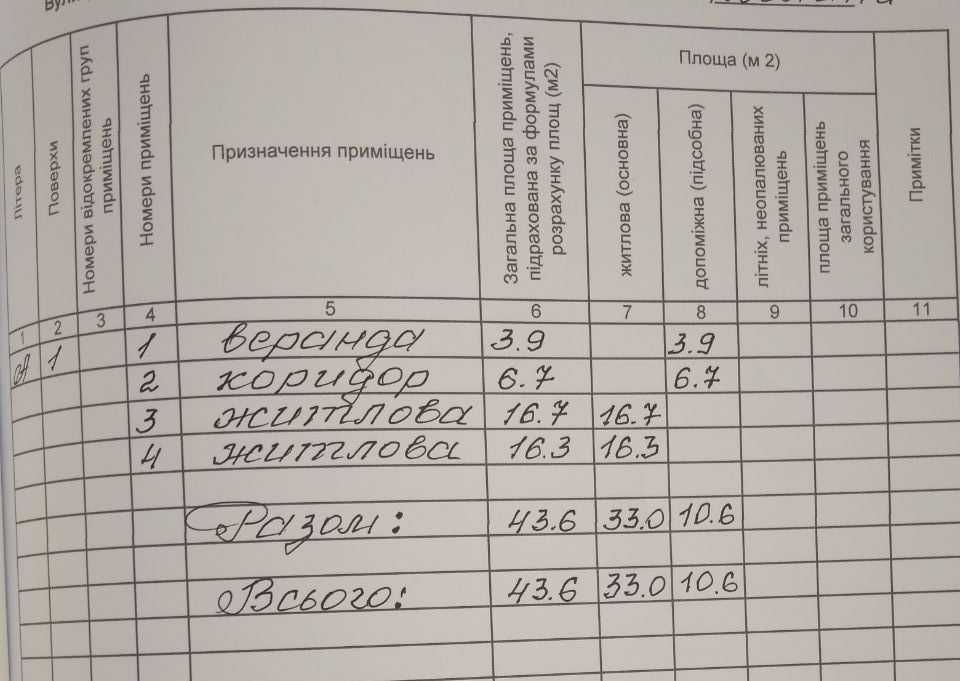 Літера
Поверхи
Номери відокремлених груп приміщень
Номери приміщень
Призначення приміщень
Загальна площа приміщень, підрахована за формулами розрахунку площ (м2)
Площа (м 2)
житлова (основна)
допоміжна (підсобна)
літніх, неопалюваних приміщень
площа приміщень загального користування
Примітки
1 2 3 4 5 6 7 8 9 10 11
А 1 1 веранда 3.9 3.9
2 коридор 6.7 6.7
3 житлова 16.7 16.7
4 житлова 16.3 16.3
Разом: 43.6 33.0 10.6
Всього: 43.6 33.0 10.6